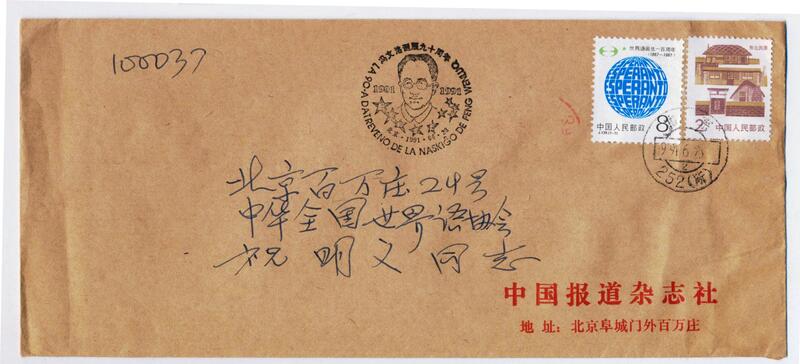 100037
冯文洛诞辰九十周年
LA 90-A DATREVENO DE LA NASKIĜO DE FENG WENLUO
1901 1991
世界语诞生一百周年
(1887-1987)
ESPERANTO
ESPERANTO
ESPERANTO
中国人民邮政 8分
东北民居
中国人民邮政
252(所)
北京百万庄24号
中华全国世界语协会
祝明义同志
中国报道杂志社
地址:北京阜城门外百万庄